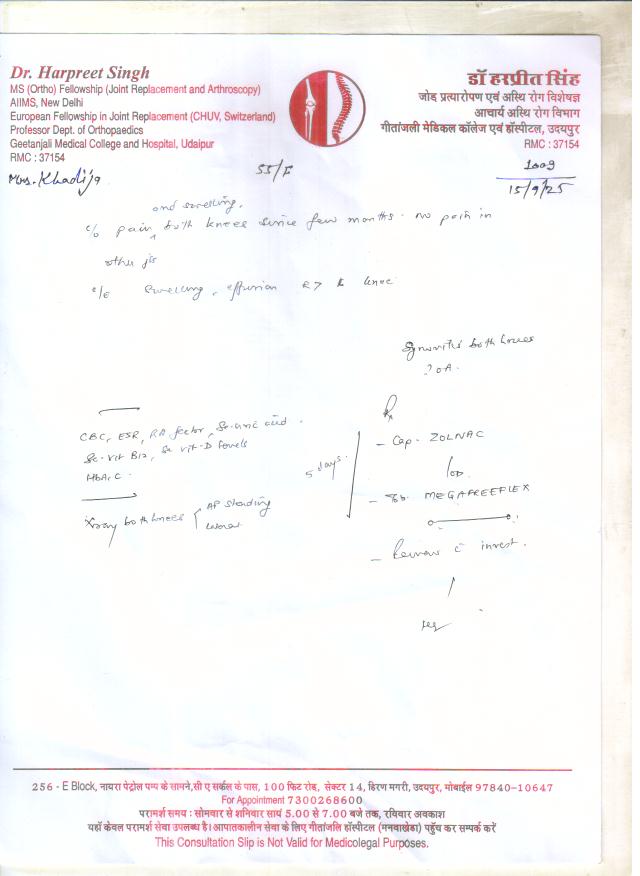 Dr. Harpreet Singh
MS (Ortho) Fellowship (Joint Replacement and Arthroscopy)
AIIMS, New Delhi
European Fellowship in Joint Replacement (CHUV, Switzerland)
Professor Dept. of Orthopaedics
Geetanjali Medical College and Hospital, Udaipur
RMC : 37154
डॉ हरप्रीत सिंह
जोड़ प्रत्यारोपण एवं अस्थि रोग विशेषज्ञ
आचार्य अस्थि रोग विभाग
गीतांजली मेडिकल कॉलेज एवं हॉस्पीटल, उदयपुर
RMC : 37154
Mrs. Khadija
55/F
1009
15/9/25
and swelling.
c/o pain, both knees since few months. no pain in
other jts
o/e swelling, effusion R > L knee
Synovitis both knees
? OA.
CBC, ESR, RA factor, Sr. uric acid.
Sr. vit B12, Sr vit-D levels
HbA1C.
Xray both knees AP standing
lateral
Rx
5 days.
- Cap. ZOLNAC
1 OD
- Tab. MEGAFREEFLEX
- Review c̄ invest.
256 - E Block, नायरा पेट्रोल पम्प के सामने, सी ए सर्कल के पास, 100 फिट रोड, सेक्टर 14, हिरण मगरी, उदयपुर, मोबाईल 97840-10647
For Appointment 7300268600
परामर्श समय : सोमवार से शनिवार सायं 5.00 से 7.00 बजे तक, रविवार अवकाश
यहाँ केवल परामर्श सेवा उपलब्ध है। आपातकालीन सेवा के लिए गीतांजलि हॉस्पीटल (मनवाखेडा) पहुँच कर सम्पर्क करें
This Consultation Slip is Not Valid for Medicolegal Purposes.